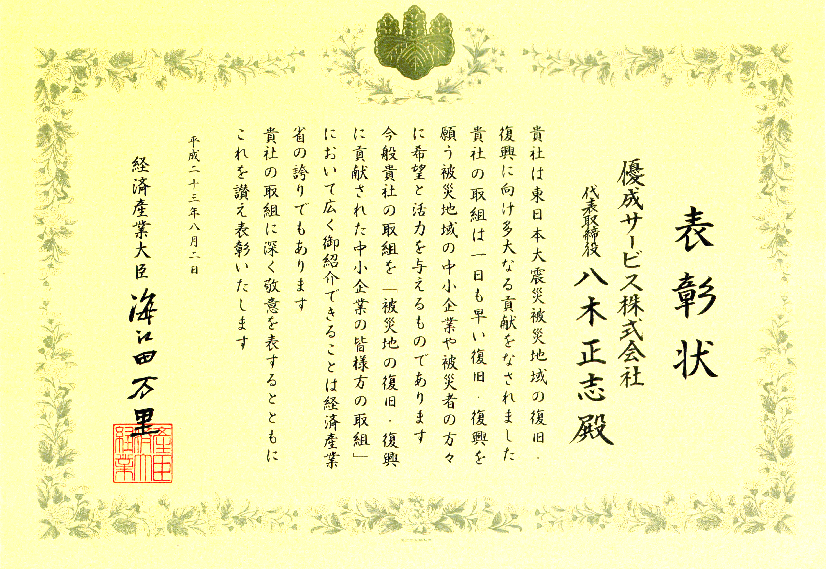 表彰状
優成サービス株式会社
代表取締役 八木正志殿
貴社は東日本大震災被災地域の復旧・
復興に向け多大なる貢献をなされました
貴社の取組は一日も早い復旧・復興を
願う被災地域の中小企業や被災者の方々
に希望と活力を与えるものであります
今般貴社の取組を「被災地の復旧・復興
に貢献された中小企業の皆様方の取組」
において広く御紹介できることは経済産業
省の誇りでもあります
貴社の取組に深く敬意を表するとともに
これを讃え表彰いたします
平成二十三年八月二日
経済産業大臣 海江田万里